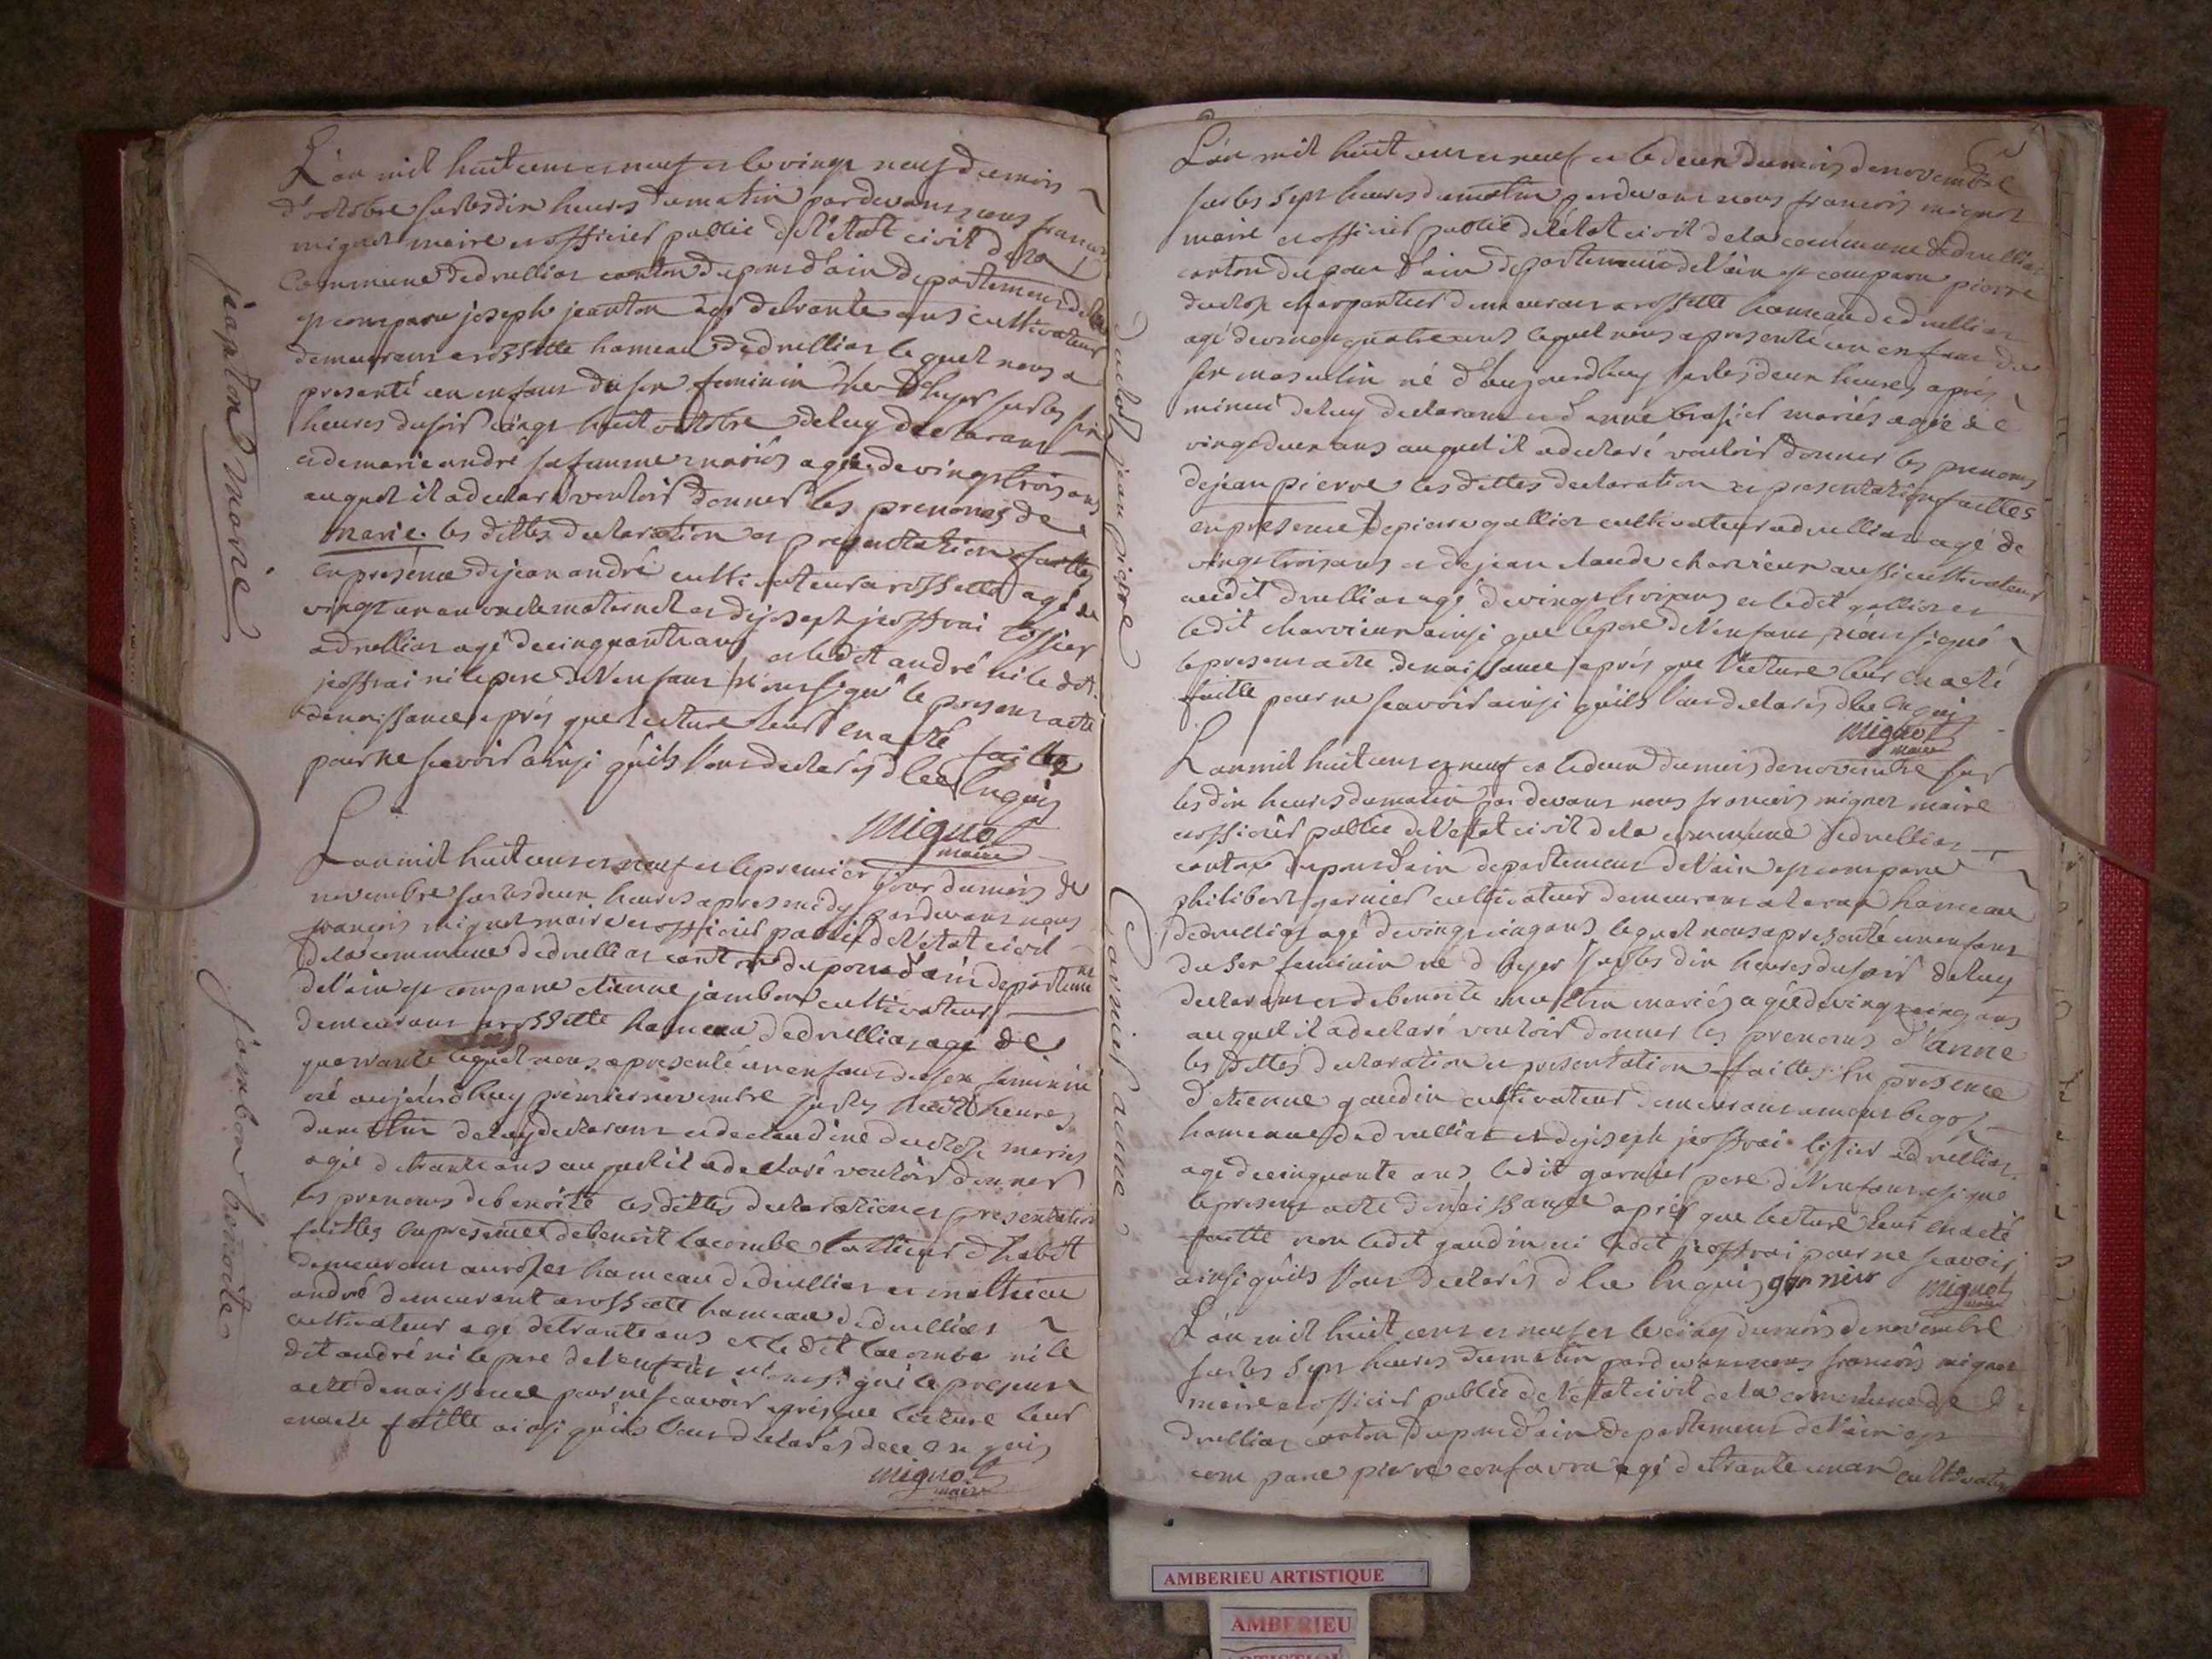 L'an mil huit cent et neuf et le vingt neuf du mois
d'octobre sur les dix heures du matin pardevant nous francois
mignot maire et officier public de l'état civil de la
Commune de druillat canton du pont d'ain departement de l'ain
est comparu joseph jeanton agé de trante ans cultivateur
demeurant a rossette hameau de druillat lequel nous a
presenté un enfant du sex feminin née d'hyer sur les six
heures du soir vingt huit octobre de luy declarant
et de marie andré sa femme mariés agée de vingt trois ans
auquel il a declaré vouloir donner les prenoms de
marie. les dittes declaration et presentation faittes
en presence de jean andré cultivateur a rossette agé de
vingt un an oncle maternel et de joseph jeoffrai
a druillat agé de cinquante ans et ledit andré ni le dit
jeoffrai ni le pere de l'enfant n'ont signé le present acte
de naissance après que lecture leur en a eté faitte
pour ne scavoir ainsi qu'ils l'ont declarés de ce enquis
mignot
maire
jeanton marie
L'an mil huit cent et neuf et le premier jour du mois de
novembre sur les deux heures apres midy pardevant nous
francois mignot maire et officier public de l'état civil
de la commune de druillat canton du pont d'ain departement
de l'ain est comparu etienne jambon cultivateur
demeurant a rossette hameau de druillat agé de
quarante lequel nous a presenté un enfant du sex feminin
né aujourd'huy premier novembre sur les huit heures
du matin de luy declarant et de claudine duclos mariés
agée de trante ans auquel il a declaré vouloir donner
les prenoms de benoite les dittes declaration et presentation
faittes en presence de benoit lacombe tallieur d'habit
demeurant hameau de druillat et mathieu
andré demeurant a rossette hameau de druillat
cultivateur agé de trante ans et le dit lacombe ni le
dit andré ni le pere de l'enfant n'ont signé le present
acte de naissance pour ne scavoir après que lecture leur
en a eté faitte ainsi qu'ils l'ont declarés de ce enquis
mignot
maire
jambon benoite
L'an mil huit cent et neuf et le deux du mois de novembre
sur les sept heures du matin pardevant nous francois mignot
maire et officier public de l'état civil de la commune de druillat
canton du pont d'ain departement de l'ain est comparu pierre
duclos charpantier demeurant a rossette hameau de druillat
agé de vingt quatre ans lequel nous a presenté un enfant du
sex masculin né d'aujourd'huy sur les deux heures après
minui de luy declarant et d'anne brasier mariés agée de
vingt deux ans auquel il a declaré vouloir donner les prenoms
de jean pierre les dittes declaration et presentation faittes
en presence de pierre galliot cultivateur a druillat agé de
vingt trois ans et de jean claude charvieux aussi cultivateur
audit druillat agé de vingt trois ans et ledit galliot et
ledit charvieux ainsi que le pere de l'enfant n'ont signé
le present acte de naissance après que lecture leur en a eté
faitte pour ne scavoir ainsi qu'ils l'ont declarés de ce enquis
mignot
maire
duclos jean pierre
L'an mil huit cent et neuf et le deux du mois de novembre sur
les dix heures du matin par devant nous francois mignot maire
et officier public de l'état civil de la commune de druillat
canton du pont d'ain departement de l'ain est comparu
philibert garnier cultivateur demeurant a hameau
de druillat agé de vingt cinq ans lequel nous a presenté un enfant
du sex feminin né d'hyer sur les dix heures du soir de luy
declarant et de benoite mariés agée de vingt cinq ans
auquel il a declaré vouloir donner les prenoms d'anne
les dittes declaration et presentation faittes en presence
d'etienne gaudin cultivateur demeurant
hameau de druillat et de joseph jeoffrai a druillat
agé de cinquante ans ledit garnier pere de l'enfant a signé
le present acte de naissance après que lecture leur en a eté
faitte non ledit gaudin ni ledit jeoffrai pour ne scavoir
ainsi qu'ils l'ont declarés de ce enquis garnier mignot
maire
Garnier anne
L'an mil huit cent et neuf et le cinq du mois de novembre
sur les sept heures du matin pardevant nous francois mignot
maire et officier public de l'état civil de la commune de
druillat canton du pont d'ain departement de l'ain est
comparu pierre confavra agé de trante un an cultivateur
AMBERIEU ARTISTIQUE
AMBERIEU
ARTISTIQUE